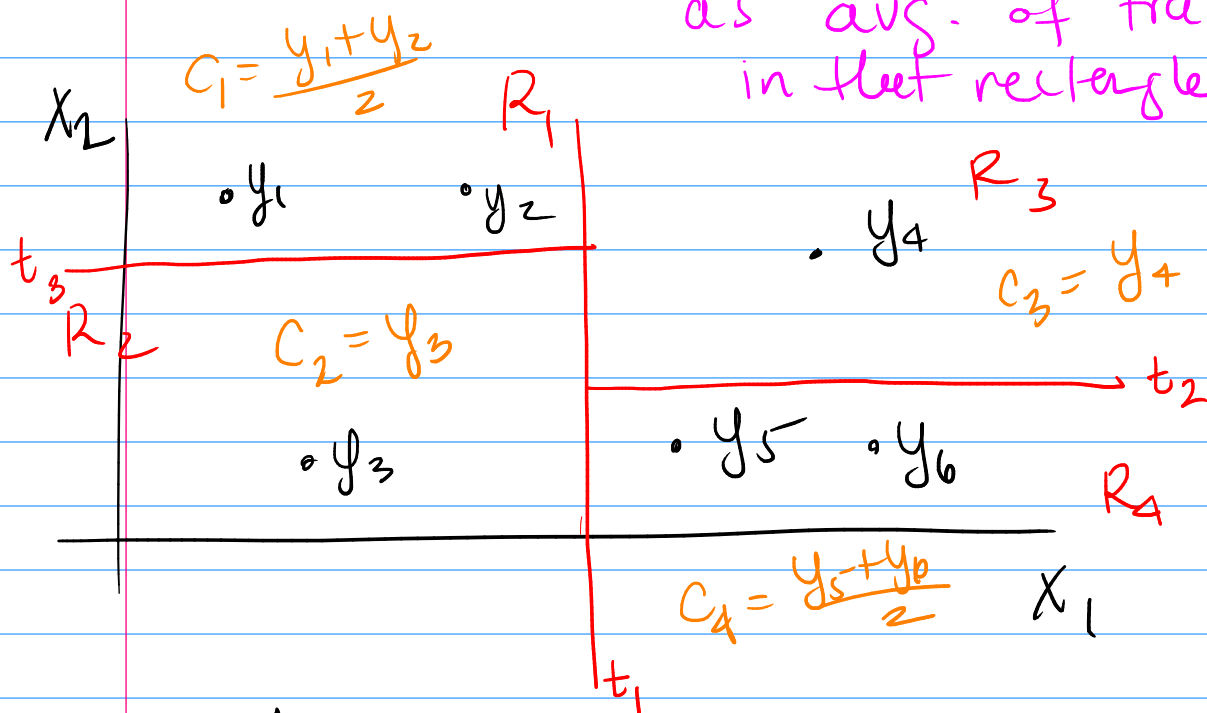 as avg. of tra
in that rectangle
C₁ = (y₁+y₂)/2
R₁
X₂
R₃
.y₁
.y₂
. y₄
t₃
C₃ = y₄
R₂
C₂ = y₃
t₂
.y₃
.y₅
.y₆
R₄
C₄ = (y₅+y₆)/2
X₁
t₁